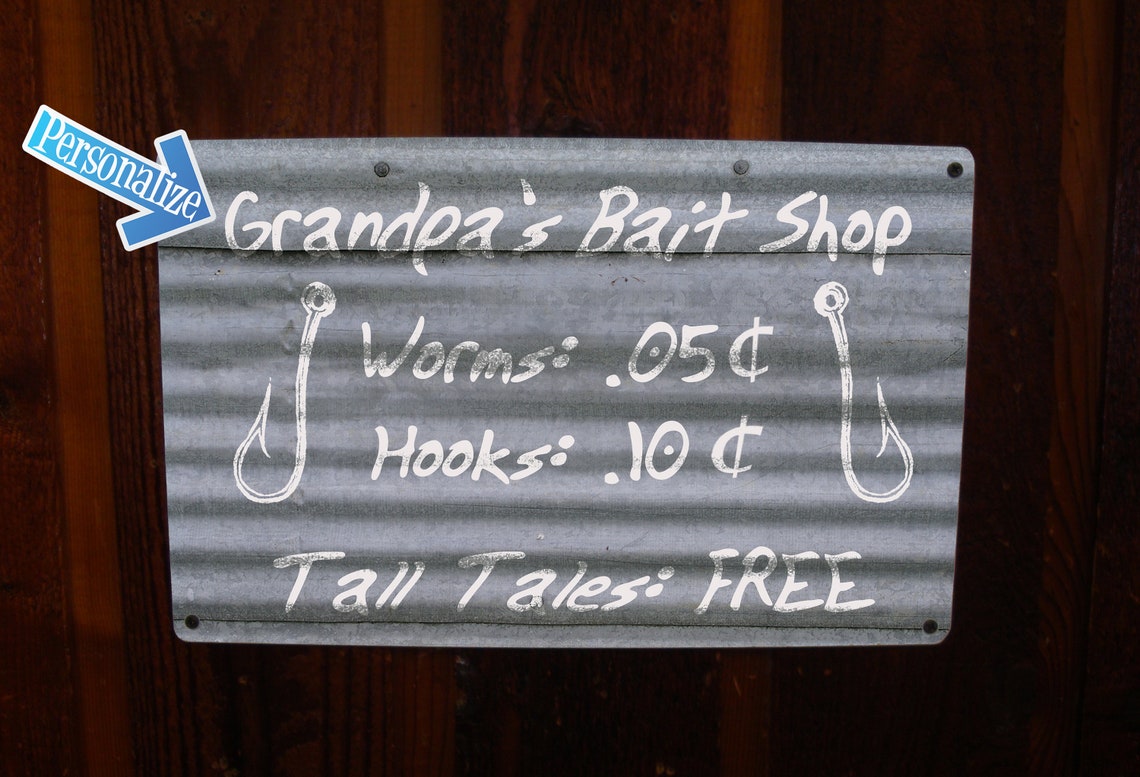 Personalize
Grandpa's Bait Shop
Worms: .05¢
Hooks: .10 ¢
Tall Tales: FREE